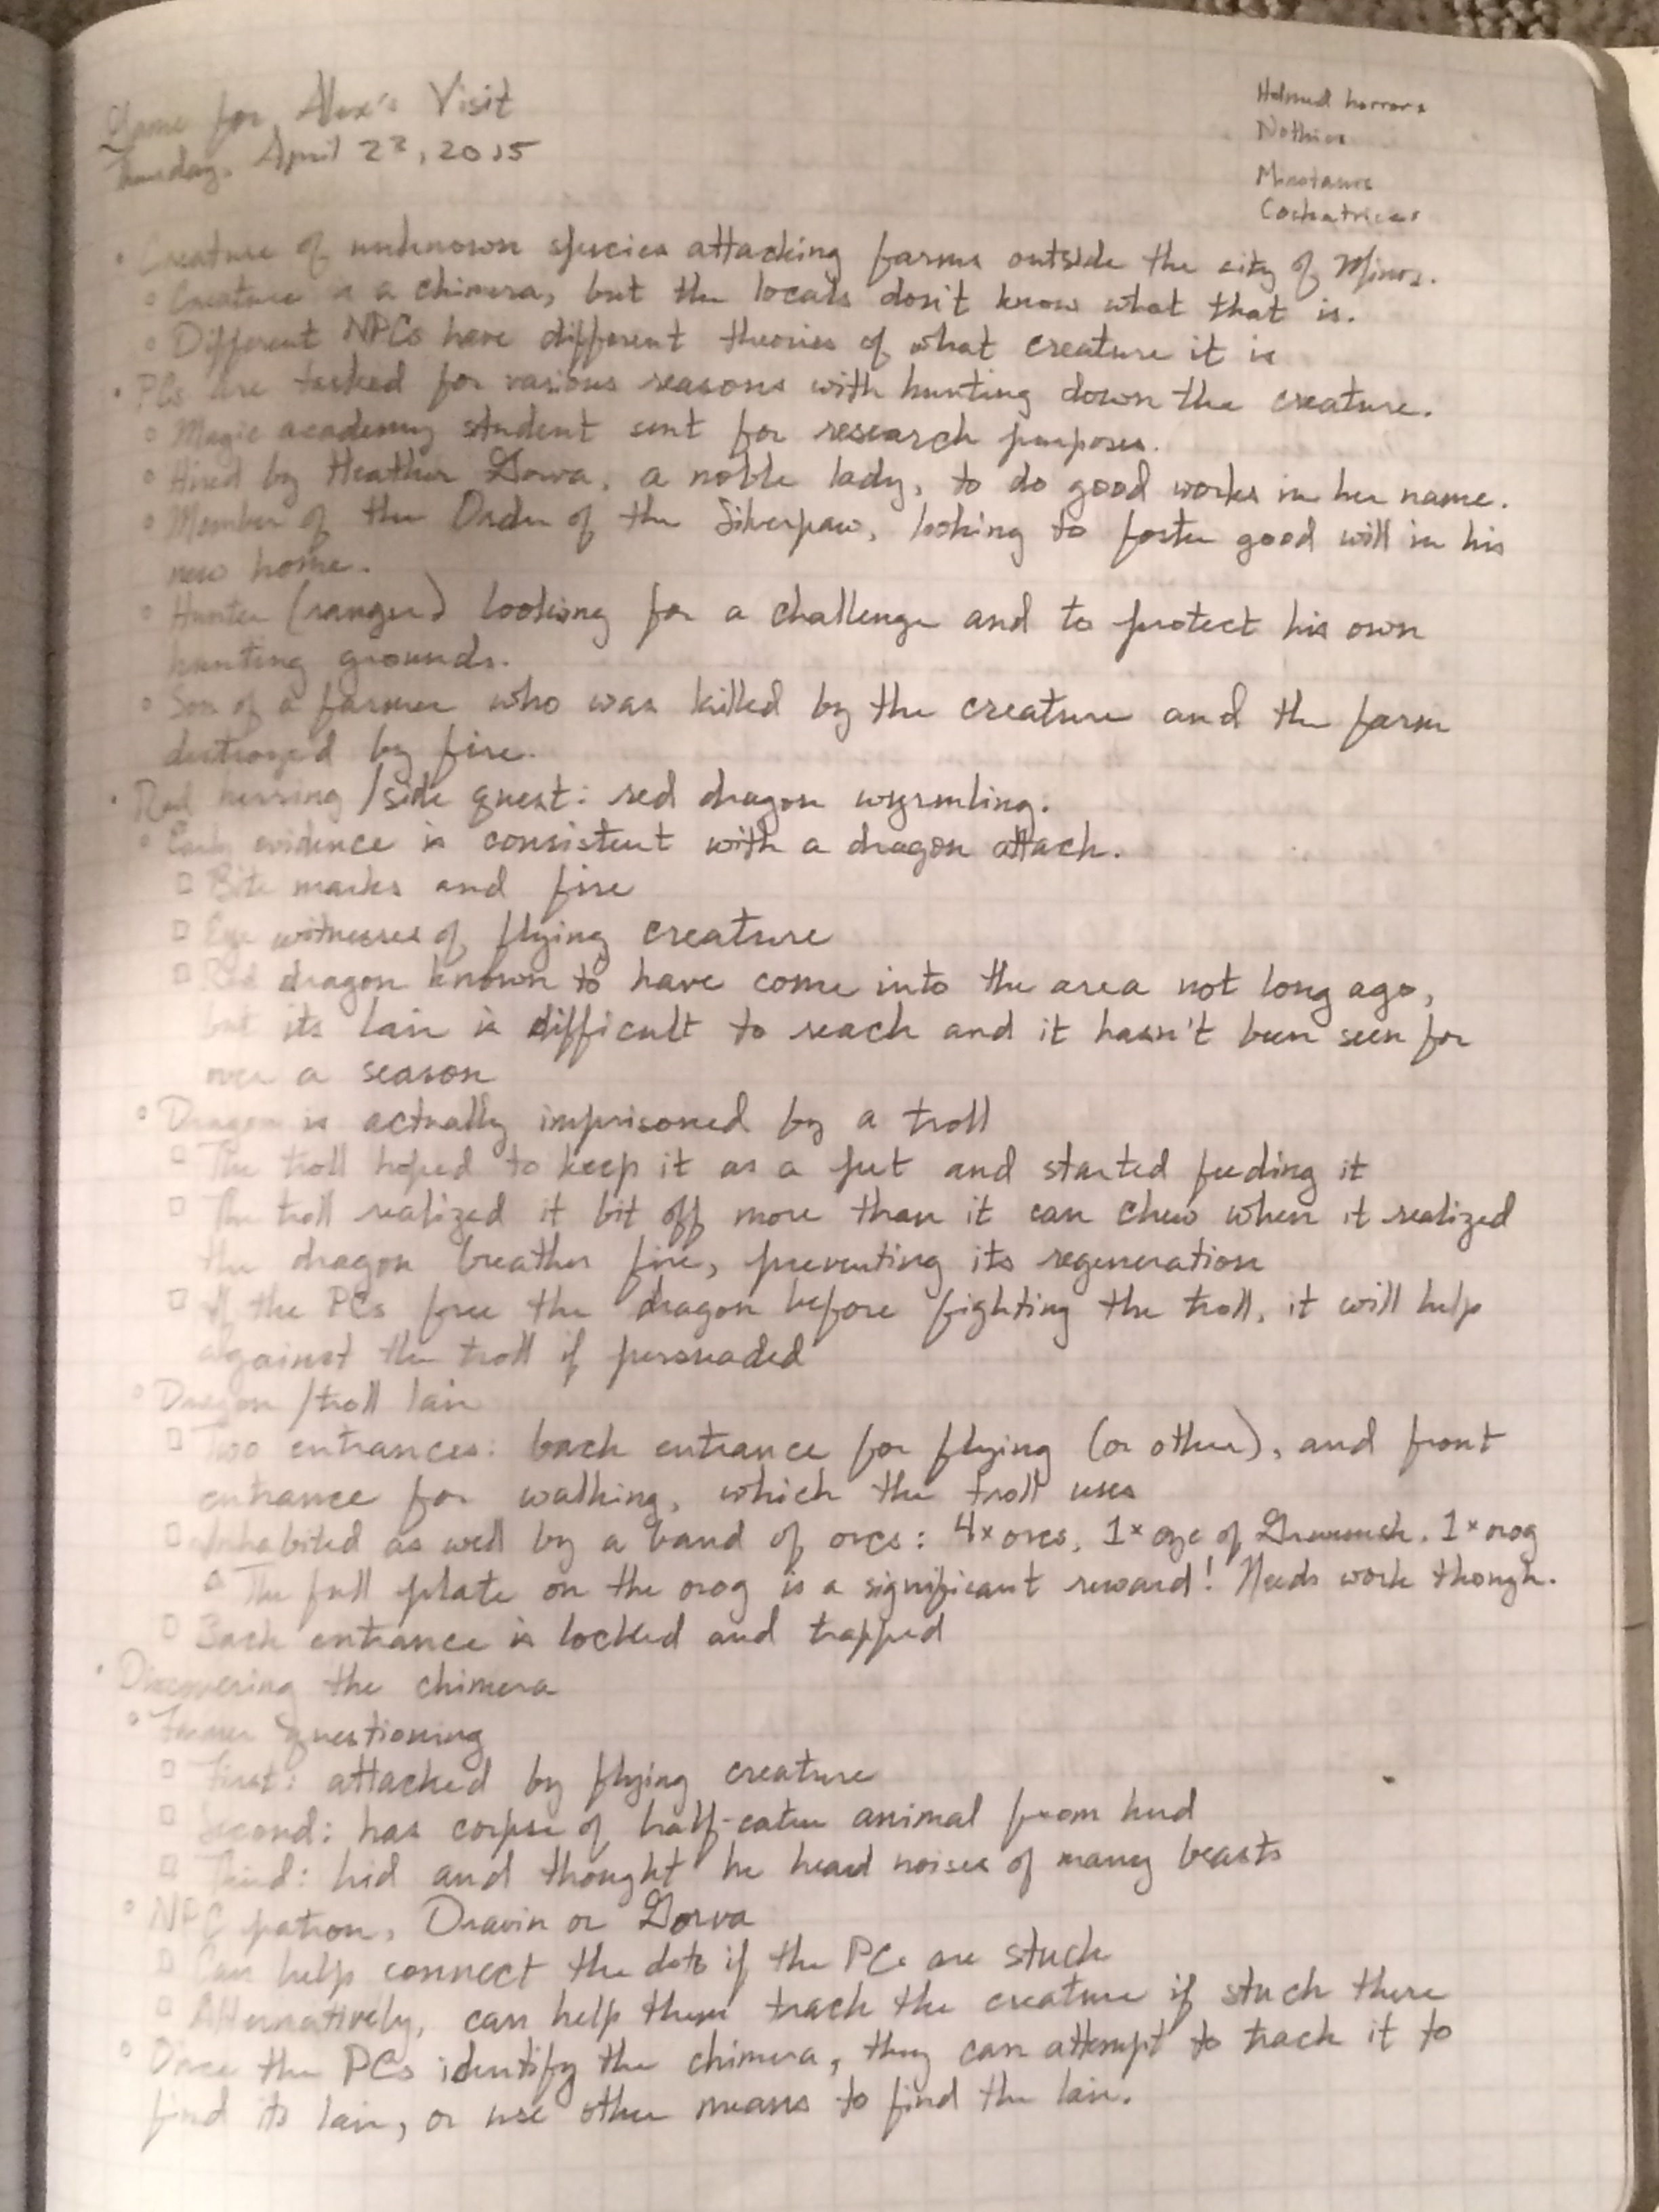 Game for Alex's Visit
Thursday, April 23, 2015
Helmed horrors
Nothics
Minotaurs
Cockatrices
• Creature of unknown species attacking farms outside the city of Minos.
◦ Creature is a chimera, but the locals don't know what that is.
◦ Different NPCs have different theories of what creature it is
• PCs are tasked for various reasons with hunting down the creature.
◦ Magic academy student sent for research purposes.
◦ Hired by Heather Gorva, a noble lady, to do good works in her name.
◦ Member of the Order of the Silverpaw, looking to foster good will in his
new home.
◦ Hunter (ranger) looking for a challenge and to protect his own
hunting grounds.
◦ Son of a farmer who was killed by the creature and the farm
destroyed by fire.
• Red herring/side quest: red dragon wyrmling.
◦ Early evidence is consistent with a dragon attack.
▫ Bite marks and fire
▫ Eye witnesses of flying creature
▫ Red dragon known to have come into the area not long ago,
but its lair is difficult to reach and it hasn't been seen for
over a season
◦ Dragon is actually imprisoned by a troll
▫ The troll hoped to keep it as a pet and started feeding it
▫ The troll realized it bit off more than it can chew when it realized
the dragon breathes fire, preventing its regeneration
▫ If the PCs free the dragon before fighting the troll, it will help
against the troll if persuaded
◦ Dragon/troll lair
▫ Two entrances: back entrance for flying (or other), and front
entrance for walking, which the troll uses
▫ Inhabited as well by a band of orcs: 4x orcs, 1x eye of Gruumsh, 1x orog
▵ The full plate on the orog is a significant reward! Needs work though.
▫ Back entrance is locked and trapped
• Discovering the chimera
◦ Farmer questioning
▫ First: attacked by flying creature
▫ Second: has corpse of half-eaten animal from herd
▫ Third: hid and thought he heard noises of many beasts
◦ NPC patron, Dravin or Gorva
▫ Can help connect the dots if the PCs are stuck
▫ Alternatively, can help them track the creature if stuck there
◦ Once the PCs identify the chimera, they can attempt to track it to
find its lair, or use other means to find the lair.